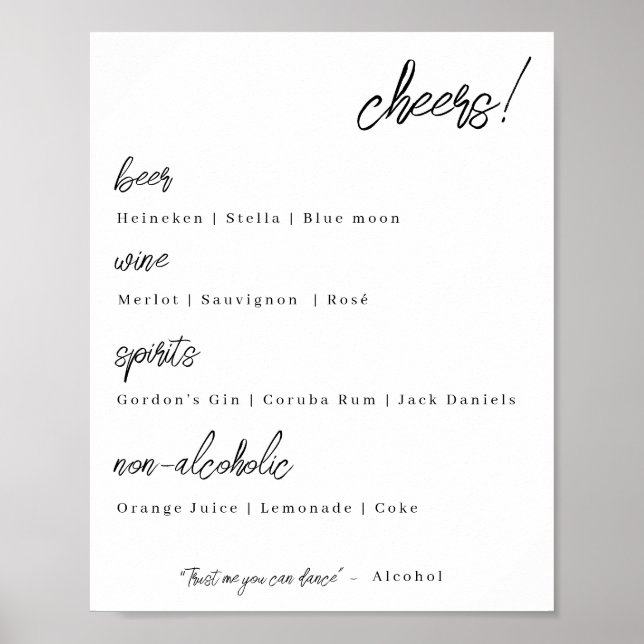 cheers!
beer
Heineken | Stella | Blue moon
wine
Merlot | Sauvignon | Rosé
spirits
Gordon's Gin | Coruba Rum | Jack Daniels
non-alcoholic
Orange Juice | Lemonade | Coke
"Trust me you can dance" - Alcohol